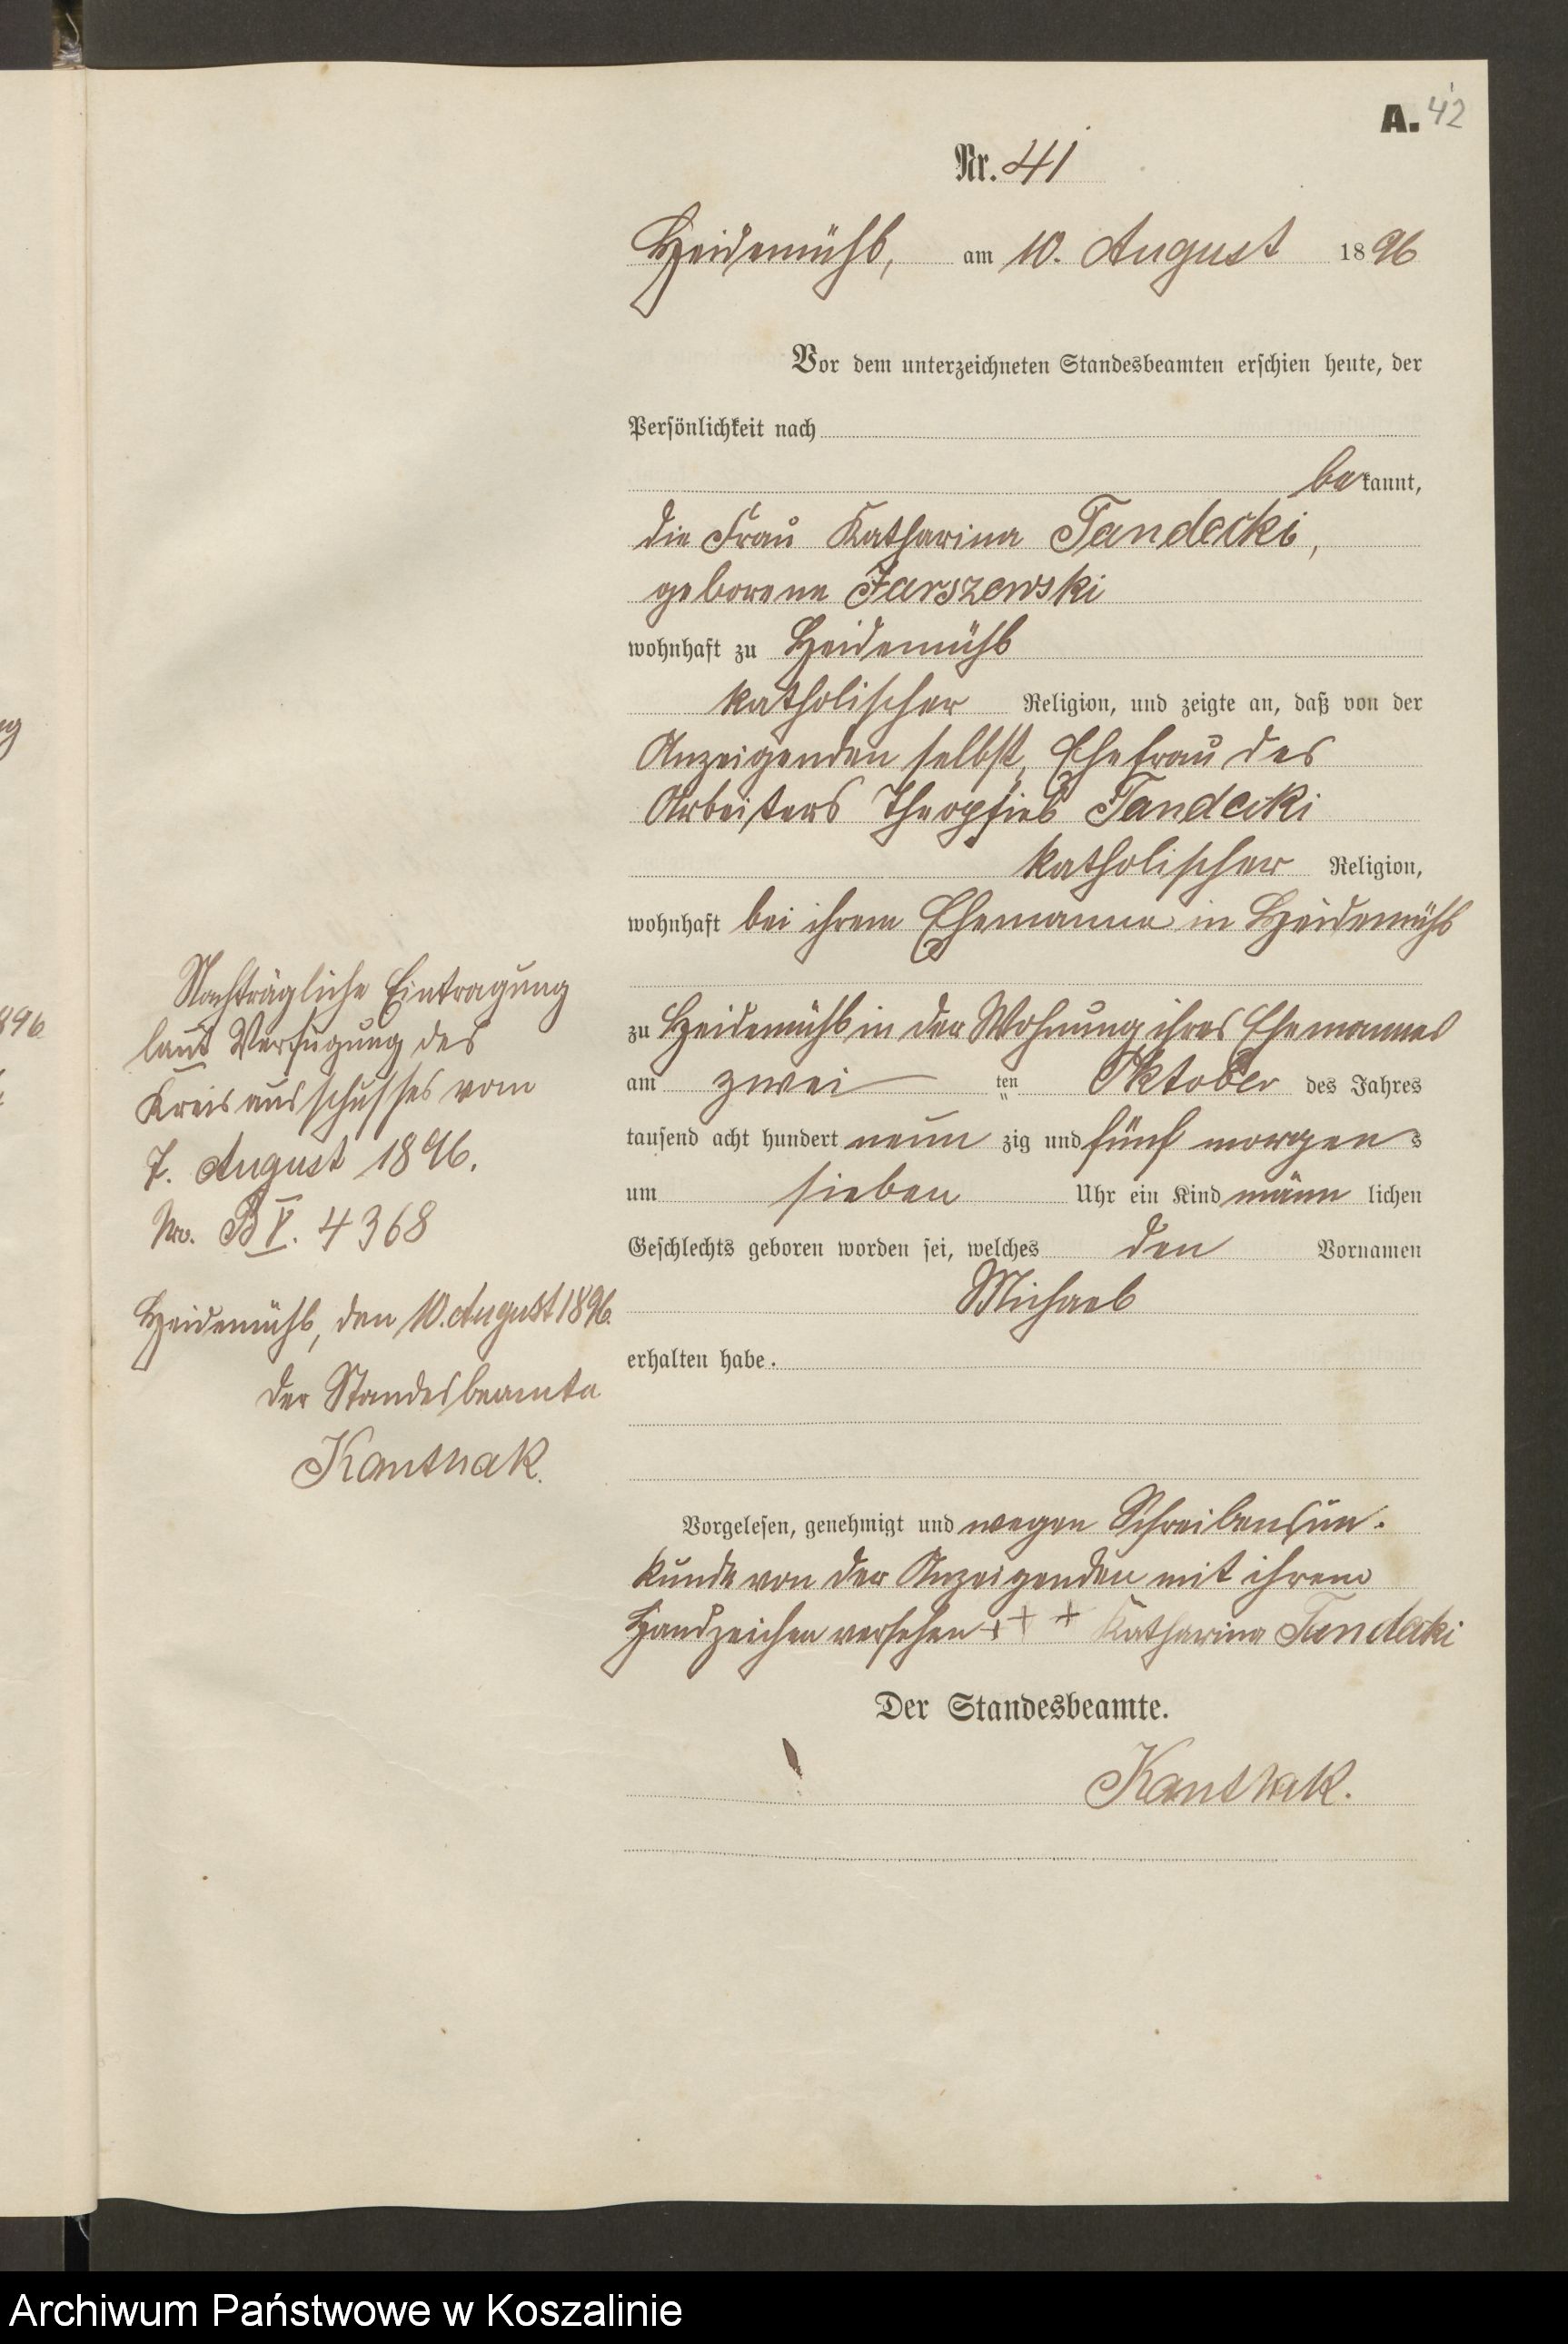 A. 42
Nr. 41
Heidemühl, am 10. August 1896
Vor dem unterzeichneten Standesbeamten erschien heute, der
Persönlichkeit nach
bekannt,
die Frau Katharina Tandecki,
geborene Jarszewski
wohnhaft zu Heidemühl
katholischer Religion, und zeigte an, daß von der
Anzeigenden selbst, Ehefrau des
Arbeiters Theophiel Tandecki
katholischer Religion,
wohnhaft bei ihrem Ehemanne in Heidemühl
zu Heidemühl in der Wohnung ihres Ehemannes
am zwei ten Oktober des Jahres
tausend acht hundert neun zig und fünf morgens
um sieben Uhr ein Kind männ lichen
Geschlechts geboren worden sei, welches den Vornamen
Michael
erhalten habe.
Vorgelesen, genehmigt und wegen Schreibensun-
kunde von der Anzeigenden mit ihrem
Handzeichen versehen +++ Katharina Tandecki
Der Standesbeamte.
Kanthak.
Nachträgliche Eintragung
laut Verfügung des
Kreisausschusses vom
7. August 1896.
Nr. B V. 4368
Heidemühl, den 10. August 1896.
Der Standesbeamte
Kanthak.
896
Archiwum Państwowe w Koszalinie